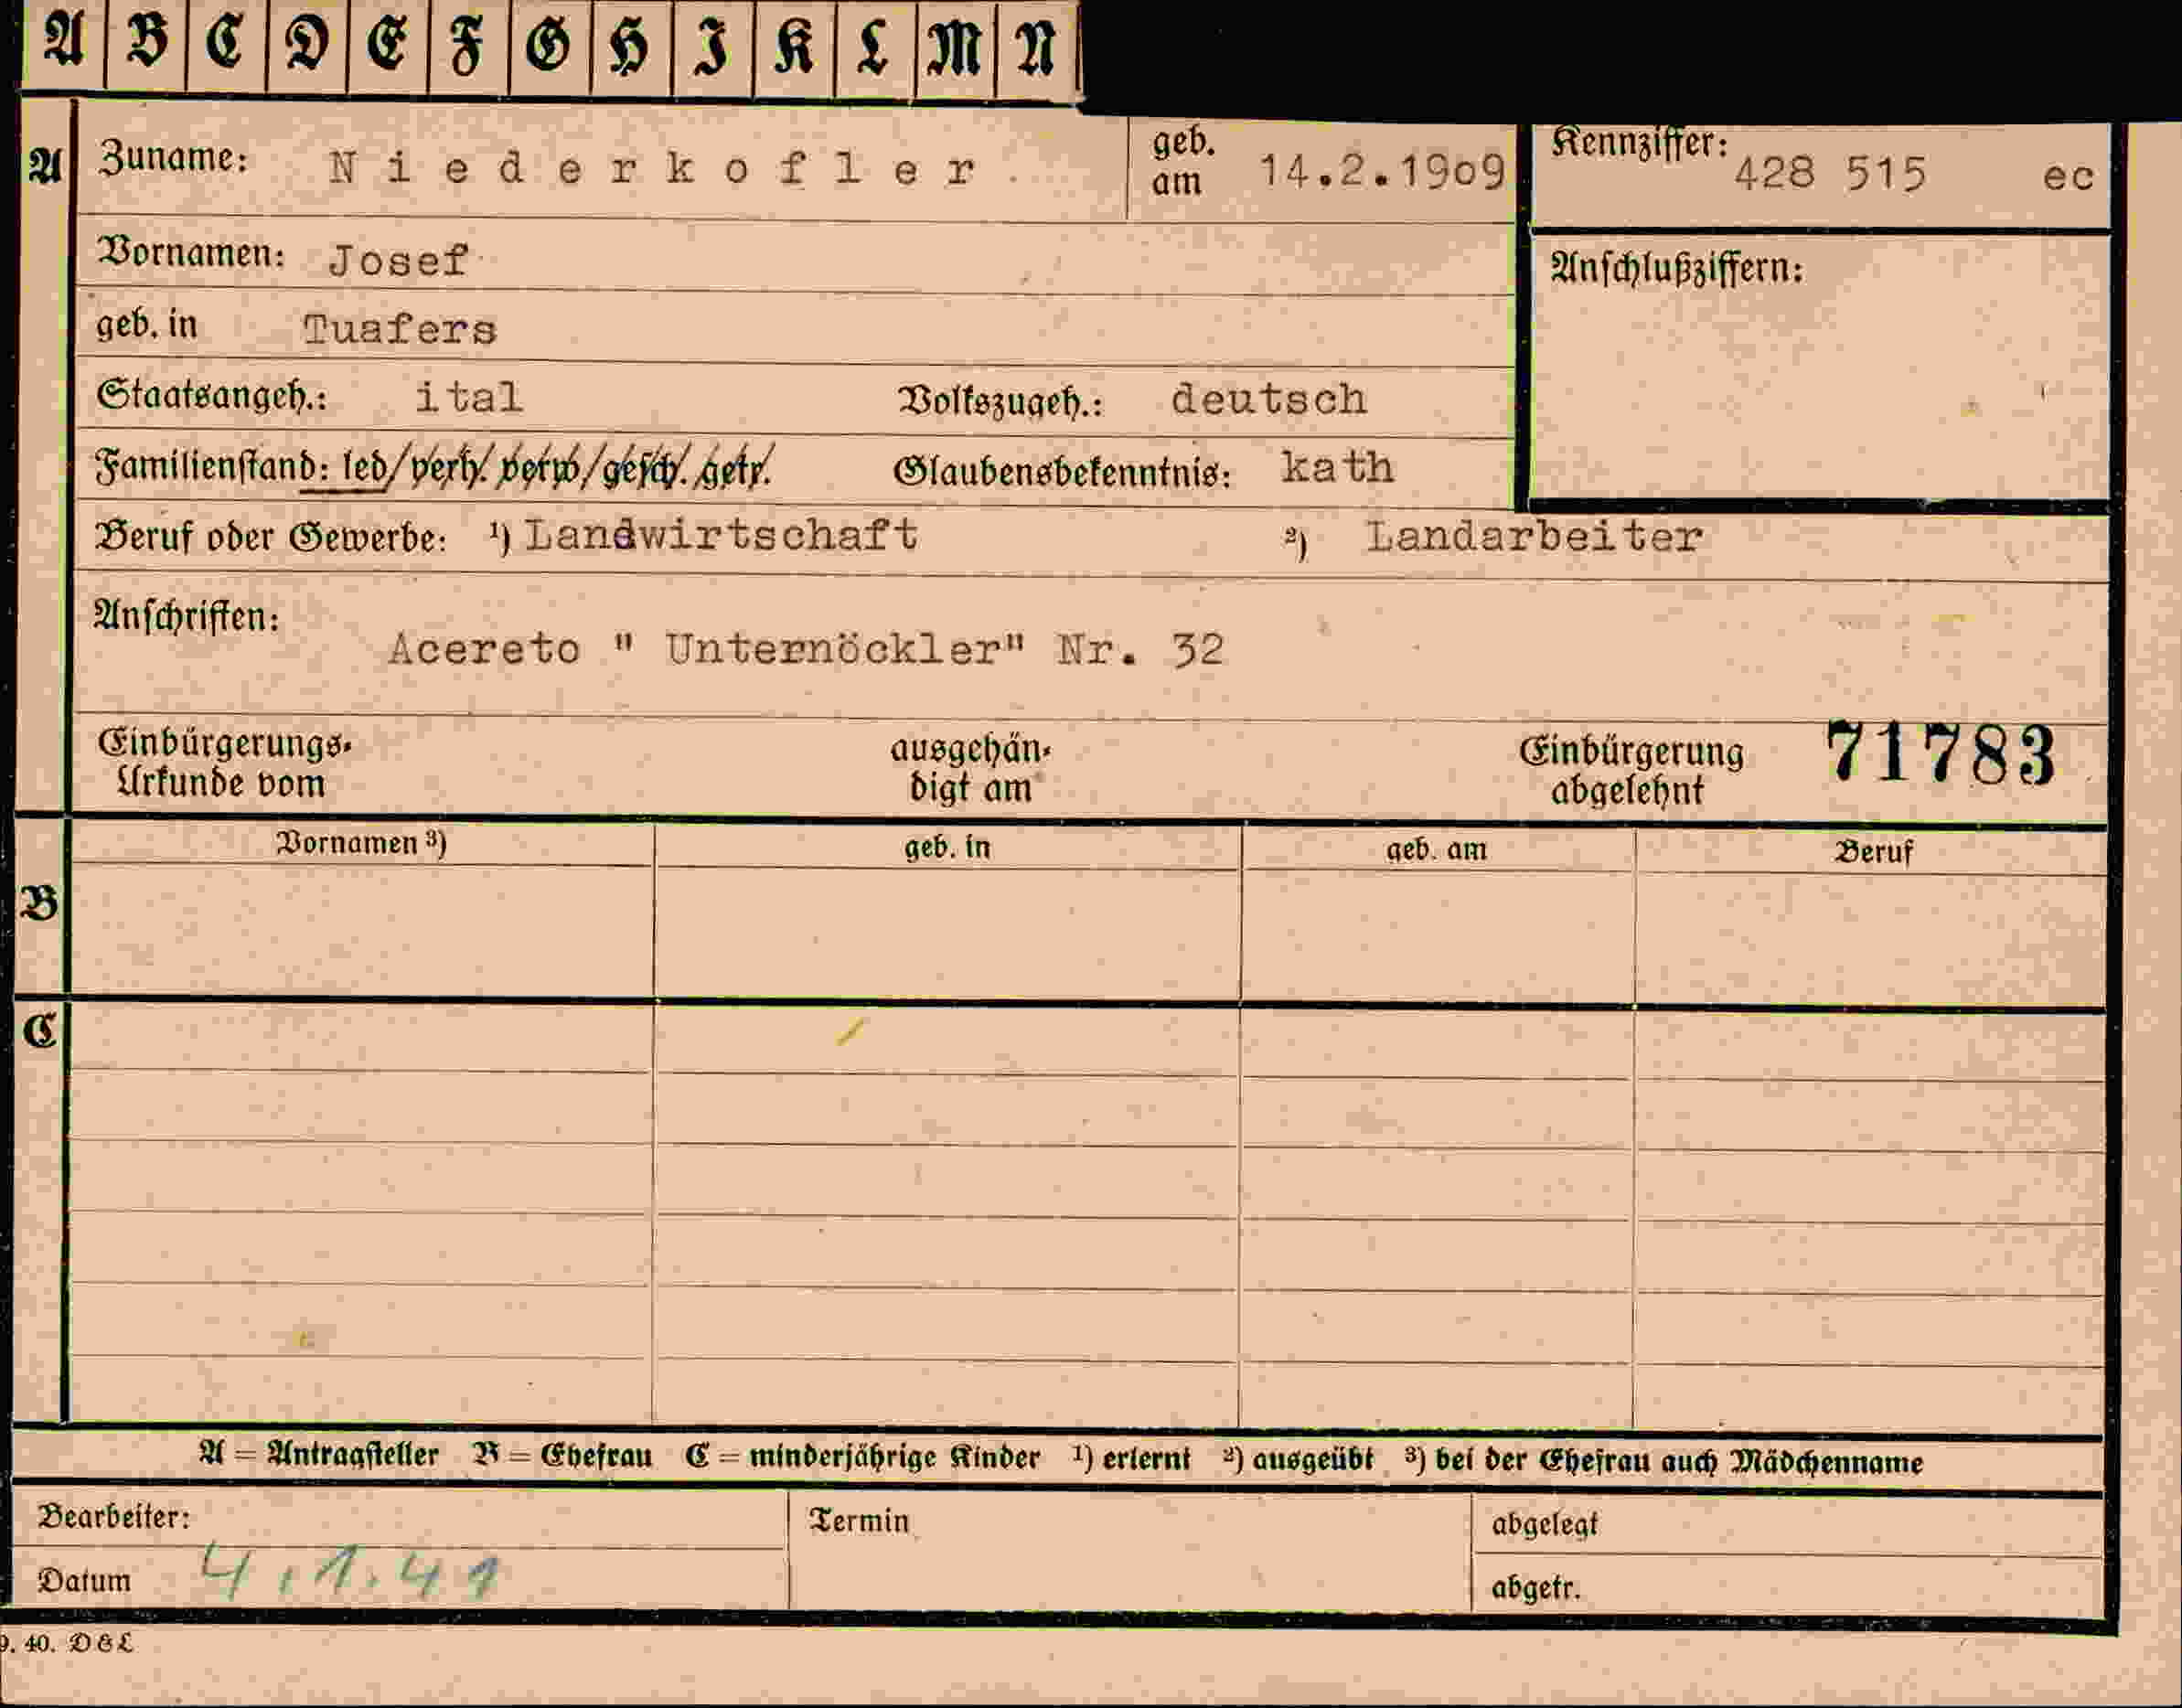 A B C D E F G H I K L M N
A Zuname: Niederkofler. geb. am 14.2.1909 Kennziffer: 428 515 ec
Vornamen: Josef Anschlußziffern:
geb. in Tuafers
Staatsangeh.: ital Volkszugeh.: deutsch
Familienstand: led/verh. verw/gesch. getr. Glaubensbekenntnis: kath
Beruf oder Gewerbe: ¹) Landwirtschaft ²) Landarbeiter
Anschriften:
Acereto " Unternöckler" Nr. 32
Einbürgerungs- ausgehän- Einbürgerung 71783
Urkunde vom digt am abgelehnt
Vornamen ³) geb. in geb. am Beruf
B
C
A = Antragsteller B = Ehefrau C = minderjährige Kinder ¹) erlernt ²) ausgeübt ³) bei der Ehefrau auch Mädchenname
Bearbeiter: Termin abgelegt
Datum 4.1.41 abgetr.
9. 40. D&L